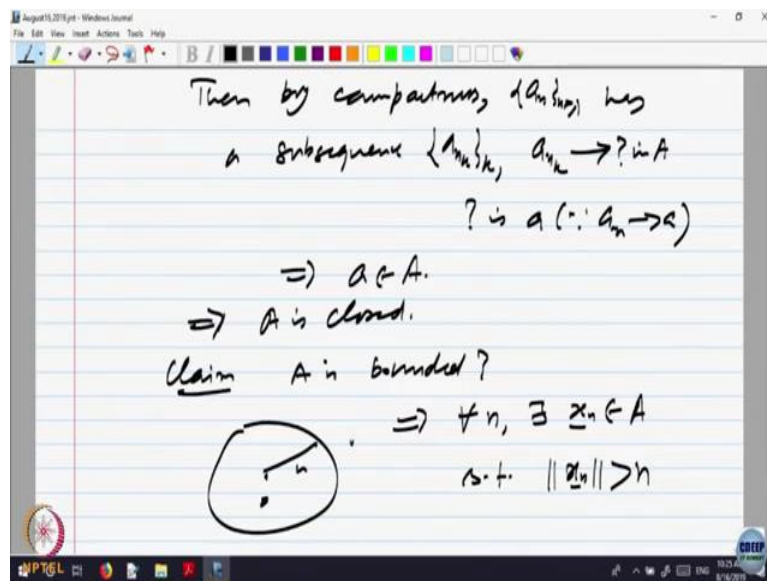 August16,2019.jnt - Windows Journal
File Edit View Insert Actions Tools Help
B I
Then by compactness, {a_n}_{n≥1} has
a subsequence {a_{n_k}}_k, a_{n_k} → ? in A
? is a (∵ a_n → a)
⇒ a ∈ A.
⇒ A is closed.
Claim A is bounded?
⇒ ∀ n, ∃ x_n ∈ A
n
s.t. ||x_n|| > n
NPTEL
CDEEP
ENG
8/16/2019